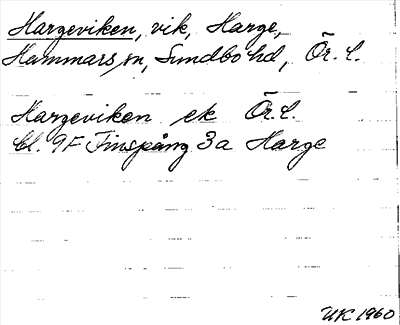 Hargeviken, vik, Harge,
Hammars sn, Sundbo hd, Ör. l.
Hargeviken ek Ör. l.
bl. 9F Finspång 3a Harge
UK 1960